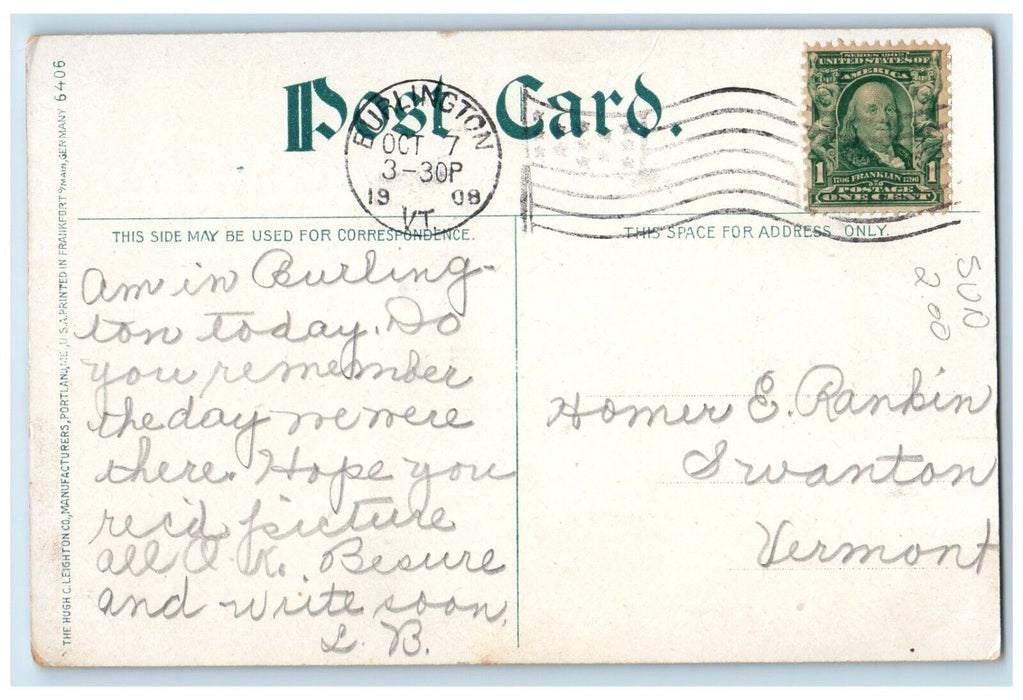 Post Card.
BURLINGTON
OCT 7
3-30P
19 08
VT.
SERIES 1902
UNITED STATES OF
AMERICA
1706 FRANKLIN 1790
1
POSTAGE
ONE CENT
THIS SIDE MAY BE USED FOR CORRESPONDENCE.
THIS SPACE FOR ADDRESS ONLY.
Am in Burling-
ton today. Do
you remember
the day we were
there. Hope you
rec'd picture
all O.K. Besure
and write soon.
L. B.
Homer E. Rankin
Swanton
Vermont
2.00
THE HUGH C. LEIGHTON CO., MANUFACTURERS, PORTLAND, ME., U.S.A. PRINTED IN FRANKFORT o/MAIN, GERMANY 6406